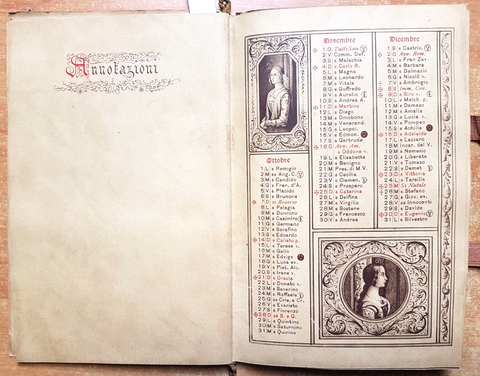 Annotazioni
Ottobre
1 L s Remigio
2 M ss Ang. C.
3 M s Candido
4 G s Fran. d'A.
5 V s Placido
6 S s Brunone
7 D ss Rosario
8 L s Pelagia
9 M s Donnino
10 M s Casimiro
11 G s Germano
12 V s Serafino
13 S s Edoardo
14 D s Calisto p.
15 L s Teresa v.
16 M s Gallo
17 M s Edvige
18 G s Luca ev.
19 V s Piet. Alc.
20 S s Irene v.
21 D s Orsola
22 L s Donato v.
23 M s Severino
24 M s Raffaele
25 G ss Cris. e Cr.
26 V s Evaristo
27 S s Fiorenzo
28 D ss S. e G.
29 L s Quintino
30 M s Saturnino
31 M s Quirino
Novembre
1 G Tutti San.
2 V Comm. Def.
3 S s Malachia
4 D s Carlo B.
5 L s Magno
6 M s Leonardo
8 G s Goffredo
9 V s Aurelio
10 S s Andrea A.
11 D s Martino
12 L s Diego
13 M s Omobono
14 M s Venerand.
15 G s Leopol.
17 S s Gertrude
18 D Avv. Am.
s Oddone v.
19 L s Elisabetta
20 M s Benigno
21 M Pres. di M.V.
22 G s Cecilia
23 V s Clemen.
24 S s Prospero
25 D s Caterina
26 L s Delfina
27 M s Virgilio
28 M s Sostene
29 G s Francesco
30 V s Andrea
Dicembre
1 S s Castric.
2 D Av. Rom.
3 L s Fran. Zav.
4 M s Barbara
5 M s Dalmazio
6 G s Nicolò v.
7 V s Ambrogio
8 S Imm. Con.
9 D s Siro v.
10 L s Melch. p.
11 M s Damaso
12 M s Amalia
13 G s Lucia v.
14 V s Pompeo
15 S s Achille
16 D s Adelaide
17 L s Lazzaro
18 M Incar. del V.
19 M s Nemesio
20 G s Liberata
21 V s Tomaso
22 S s Demet.
23 D s Vittoria
24 L s Tarsilla
25 M Ss Natale
26 M s Stefano
27 G s Giov. ev.
28 V ss Innocenti
29 S s Davide
30 D s Eugenio
31 L s Silvestro